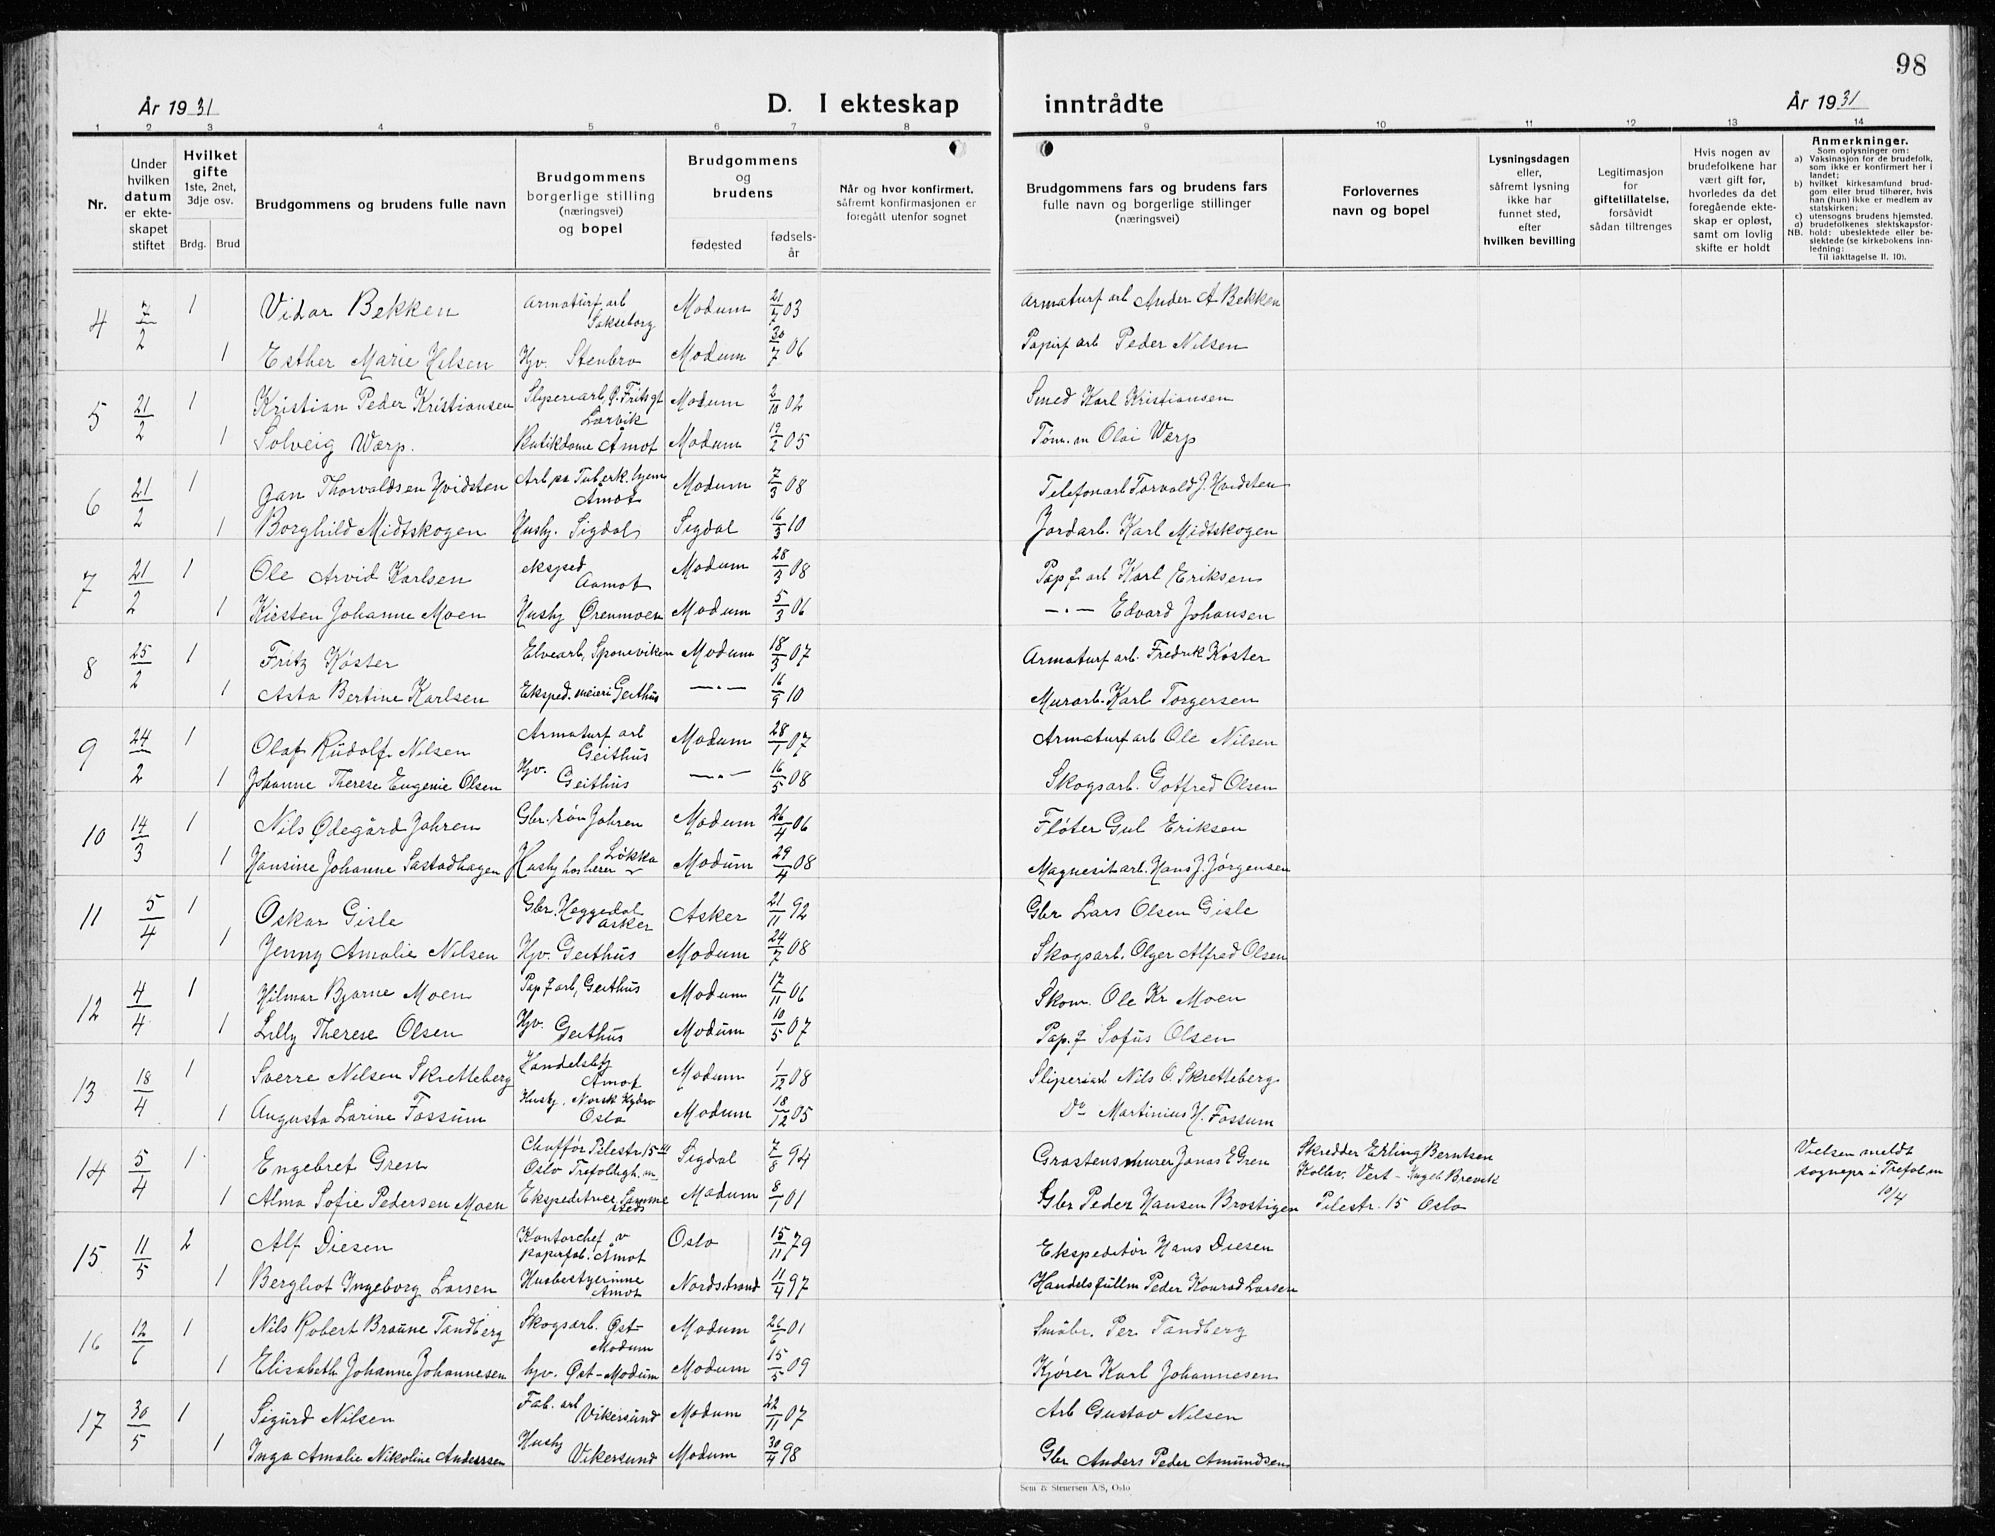 98
År 1931 D. I ekteskap inntrådte År 1931
1 2 3 4 5 6 7 8 9 10 11 12 13 14
Nr.
Under hvilken datum er ekteskapet stiftet
Hvilket gifte 1ste, 2net, 3dje osv.
Brdg. Brud
Brudgommens og brudens fulle navn
Brudgommens borgerlige stilling (næringsvei) og bopel
Brudgommens og brudens
fødested
fødselsår
Når og hvor konfirmert, såfremt konfirmasjonen er foregått utenfor sognet
Brudgommens fars og brudens fars fulle navn og borgerlige stillinger (næringsvei)
Forlovernes navn og bopel
Lysningsdagen eller, såfremt lysning ikke har funnet sted, efter hvilken bevilling
Legitimasjon for giftetillatelse, forsåvidt sådan tiltrenges
Hvis nogen av brudefolkene har vært gift før, hvorledes da det foregående ekteskap er opløst, samt om lovlig skifte er holdt
Anmerkninger.
Som oplysninger om:
a) Vaksinasjon for de brudefolk, som ikke er konfirmert her i landet;
b) hvilket kirkesamfund brudgom eller brud tilhører, hvis han (hun) ikke er medlem av statskirken;
c) utensogns brudens hjemsted.
d) brudefolkenes slektskapsforhold: ubeslektede eller beslektede (se kirkebokens innledning;
NB.
Til iakttagelse II. 10).
4 7/2 1 Vidar Bekken Armaturf arb Sakseborg Modum 21/7 03 Armaturf arb Ander A Bekken
1 Esther Marie Nilsen Hjv. Stenbro Modum 30/7 06 Papirf arb Peder Nilsen
5 21/2 1 Kristian Peder Kristiansen Sliperiarb, P. Fritsgt Larvik Modum 2/10 02 Smed Karl Kristiansen
1 Solveig Warp. Butikdame Åmot Modum 19/2 05 Tøm.m Olai Warp
6 21/2 1 Jan Thorvaldsen Hvidsten Arb på Tuberk.hjem Åmot Modum 7/3 08 Telefonarb Torvald J. Hvidsten
1 Borghild Midtskogen Hushj. Sigdal Sigdal 16/3 10 Jordarb. Karl Midtskogen
7 21/2 1 Ole Arvid Karlsen eksped Aamot Modum 28/3 08 Pap.f arb Karl Eriksen
1 Kirsten Johanne Moen Hushj Ørenmoen Modum 5/3 06 —"— Edvard Johansen
8 25/2 1 Fritz Køster Elvearb, Sponeviken Modum 18/3 07 Armaturf arb. Fredrik Køster
1 Asta Bertine Karlsen Eksped. meieri Geithus —"— 16/9 10 Murarb. Karl Torgersen
9 24/2 1 Olaf Rudolf Nilsen Armaturf arb Geithus Modum 28/1 07 Armaturf arb Ole Nilsen
1 Johanne Therese Eugenie Olsen Hjv. Geithus —"— 16/5 08 Skogsarb. Gotfred Olsen
10 14/3 1 Nils Ødegård Jahren Gbr. søn Jahren Modum 26/4 06 Fløter Gul Eriksen
1 Hansine Johanne Sastadhagen Hushj Løkka Modum 29/4 08 Magnesitarb. Hans J. Jørgensen
11 5/4 1 Oskar Gisle Gbr. Heggedal Asker Asker 21/11 92 Gbr Lars Olsen Gisle
1 Jenny Amalie Nilsen Hjv. Geithus Modum 24/7 08 Skogsarb. Olger Alfred Olsen
12 4/4 1 Hilmar Bjarne Moen Pap.f arb, Geithus Modum 17/11 06 Skom. Ole Kr Moen
1 Lilly Therese Olsen Hjv. Geithus Modum 10/5 07 Pap.f Sofus Olsen
13 18/4 1 Sverre Nilsen Skretteberg Handelsbtj Åmot Modum 1/12 08 Sliperiarb Nils O. Skretteberg
1 Augusta Larine Fossum Hushj. Norsk Hydro Oslo Modum 18/12 05 Do Martinius H. Fossum
14 5/4 1 Engebret Gren Chaffør Pilestr. 15 III Oslo Trefoldigh. m Sigdal 7/8 94 Gråstensmurer Jonas E Gren Skredder Erling Berntsen Kollev. Vert - Ingeb Brevik Pilestr. 15 Oslo Vielsen meldt sognepr i Trefol.m 10/4
1 Alma Sofie Pedersen Moen Ekspeditrice Samme sted Modum 8/1 01 Gbr Peder Hansen Brostigen
15 11/5 2 Alf Diesen Kontorchef v papirfab. Åmot Oslo 15/11 79 Ekspeditør Hans Diesen
1 Bergliot Ingeborg Larsen Husbestyerinne Åmot Nordstrand 11/4 97 Handelsfullm Peder Konrad Larsen
16 12/6 1 Nils Robert Braune Tandberg Skogsarb. Øst-Modum Modum 26/6 01 Småbr. Per Tandberg
1 Elisabeth Johanne Johannesen hjv. Øst-Modum Modum 15/5 09 Kjører Karl Johannesen
17 30/5 1 Sigurd Nilsen Fab. arb Vikersund Modum 22/11 07 Arb Gustav Nilsen
1 Inga Amalie Nikoline Anderssen Hushj Vikersund Modum 30/4 98 Gbr Anders Peder Amundsen
Sem & Stenersen A/S, Oslo